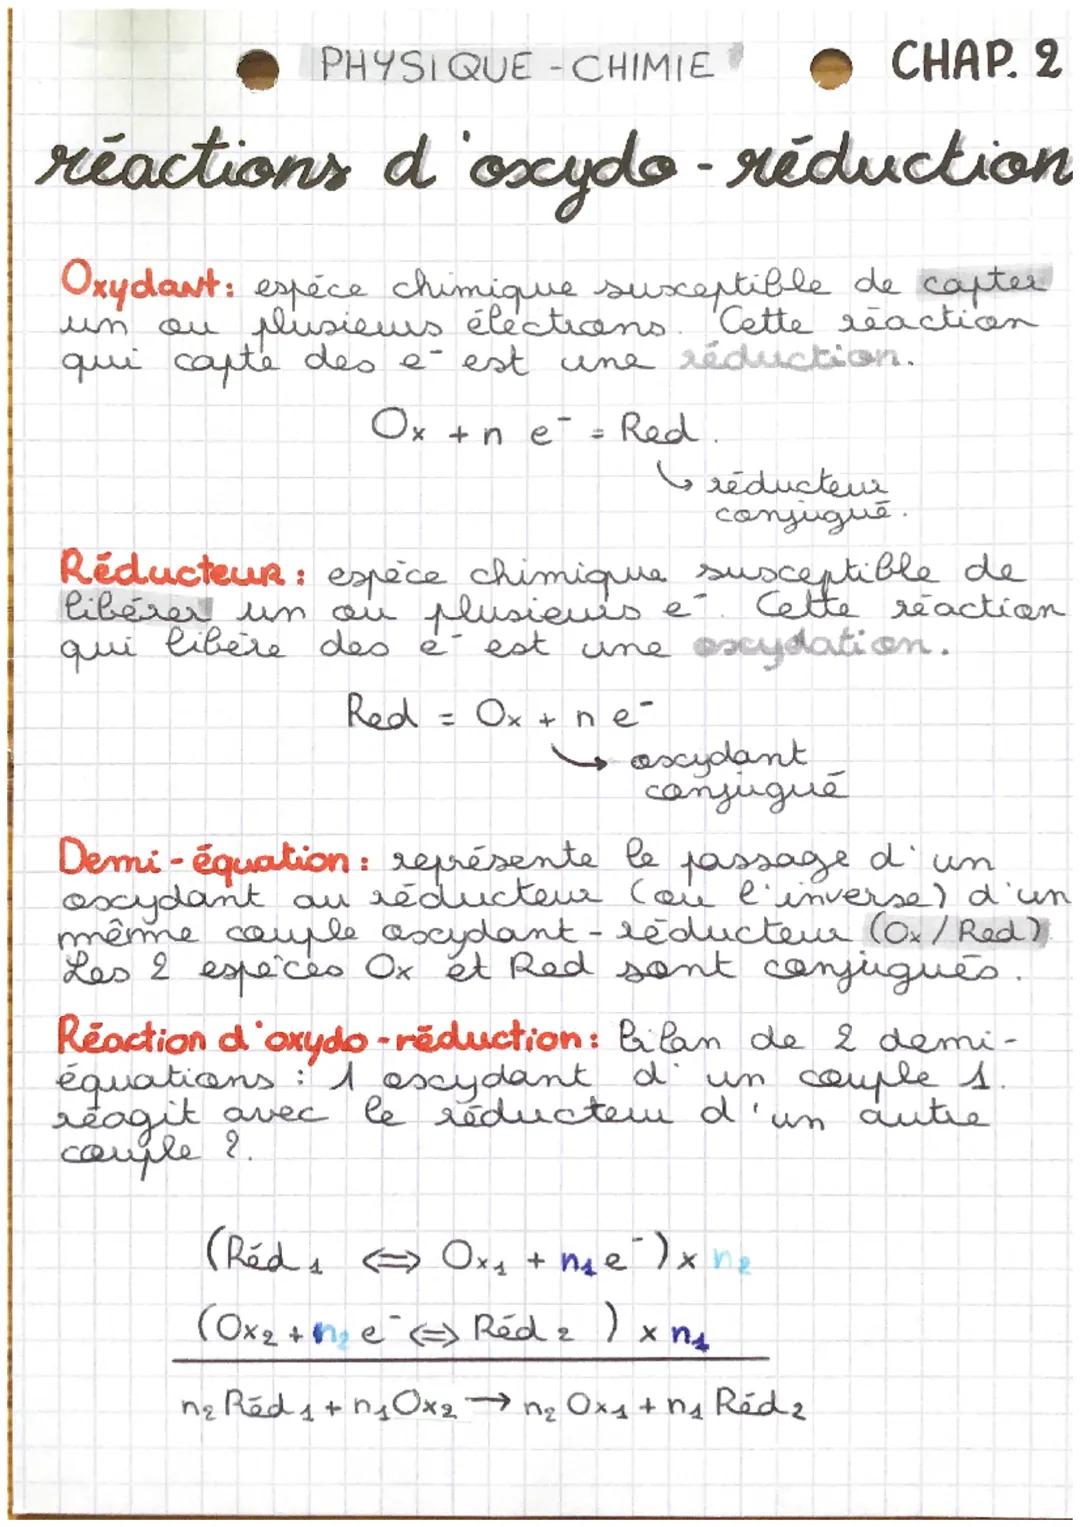 PHYSIQUE - CHIMIE
CHAP. 2
réactions d'oxydo - réduction
Oxydant : espéce chimique susceptible de capter
un ou plusieurs électrons. Cette réaction
qui capte des e⁻ est une réduction.
Ox + n e⁻ = Red.
↳ réducteur
conjugué.
Réducteur : espèce chimique susceptible de
libérer un ou plusieurs e⁻. Cette réaction
qui libère des e⁻ est une oxydation.
Red = Ox + n e⁻
↳ oxydant
conjugué
Demi - équation : représente le passage d'un
oxydant au réducteur (ou l'inverse) d'un
même couple oxydant - réducteur (Ox / Red)
Les 2 espèces Ox et Red sont conjugués.
Réaction d'oxydo - réduction : bilan de 2 demi-
équations : 1 oxydant d'un couple 1.
réagit avec le réducteur d'un autre
couple 2.
(Réd₁ ⇔ Ox₁ + n₁e⁻) x n₂
(Ox₂ + n₂ e⁻ ⇔ Réd₂) x n₁
n₂ Réd₁ + n₁Ox₂ → n₂ Ox₁ + n₁ Réd₂